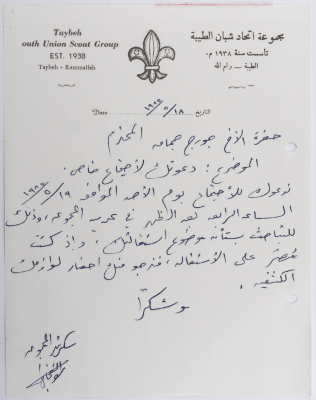 Taybeh
outh Union Scout Group
EST. 1938
Taybeh - Ramallah
مجموعة اتحاد شبان الطيبة
تأسست سنة ١٩٣٨ م.
الطيبة - رام الله
Date ١٩٨٥/٥/١٨ التاريخ
حضرة الأخ جورج حمامه المحترم
الموضوع : دعوتك لاجتماع خاص.
ندعوك للاجتماع يوم الأحد الموافق ١٩٨٥/٥/١٩
الساعة الرابعة بعد الظهر في المجموعة، وذلك
للتباحث بشأن موضوع استقالتك، وإذ كنت
مُصرّ على الاستقالة، فنرجو منك احضار لوازمك
الكشفية.
وشكراً
سكرتير المجموعة